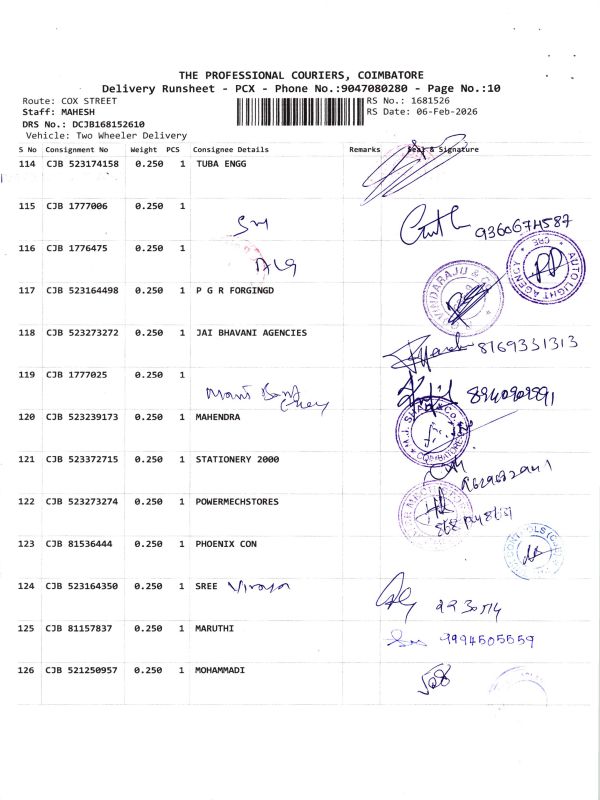 THE PROFESSIONAL COURIERS, COIMBATORE
Delivery Runsheet - PCX - Phone No.:9047080280 - Page No.:10
Route: COX STREET RS No.: 1681526
Staff: MAHESH RS Date: 06-Feb-2026
DRS No.: DCJB168152610
Vehicle: Two Wheeler Delivery
S No Consignment No Weight PCS Consignee Details Remarks Seal & Signature
114 CJB 523174158 0.250 1 TUBA ENGG
115 CJB 1777006 0.250 1
9360674587
116 CJB 1776475 0.250 1
AUTO LIGHT AGENCY * CBE *
117 CJB 523164498 0.250 1 P G R FORGINGD
118 CJB 523273272 0.250 1 JAI BHAVANI AGENCIES
8769331313
119 CJB 1777025 0.250 1
120 CJB 523239173 0.250 1 MAHENDRA
121 CJB 523372715 0.250 1 STATIONERY 2000
122 CJB 523273274 0.250 1 POWERMECHSTORES
123 CJB 81536444 0.250 1 PHOENIX CON
124 CJB 523164350 0.250 1 SREE
125 CJB 81157837 0.250 1 MARUTHI
9994505559
126 CJB 521250957 0.250 1 MOHAMMADI